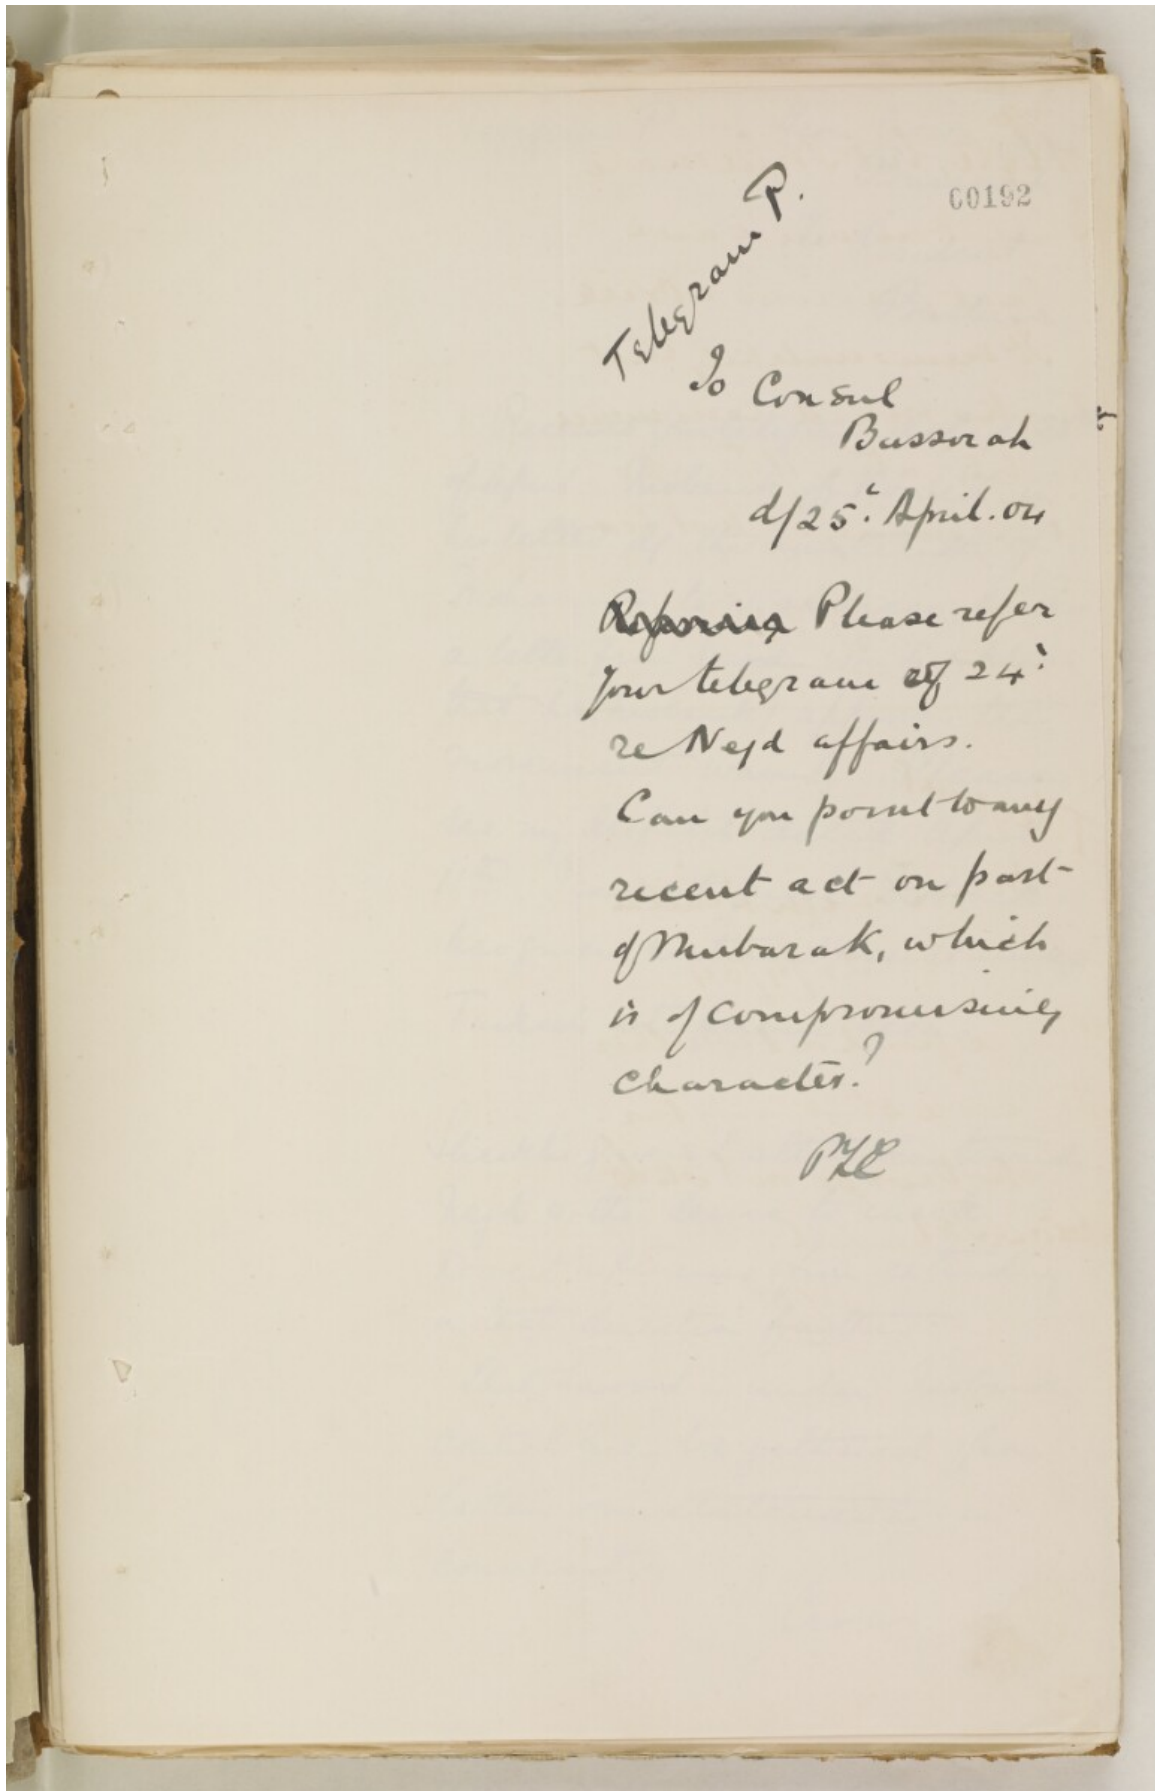 00192
Telegram P.
To Consul
Bussorah
d/25th April. 04
Please refer
your telegram of 24th
re Nejd affairs.
Can you point to any
recent act on part
of Mubarak, which
is of compromising
character?
PZC